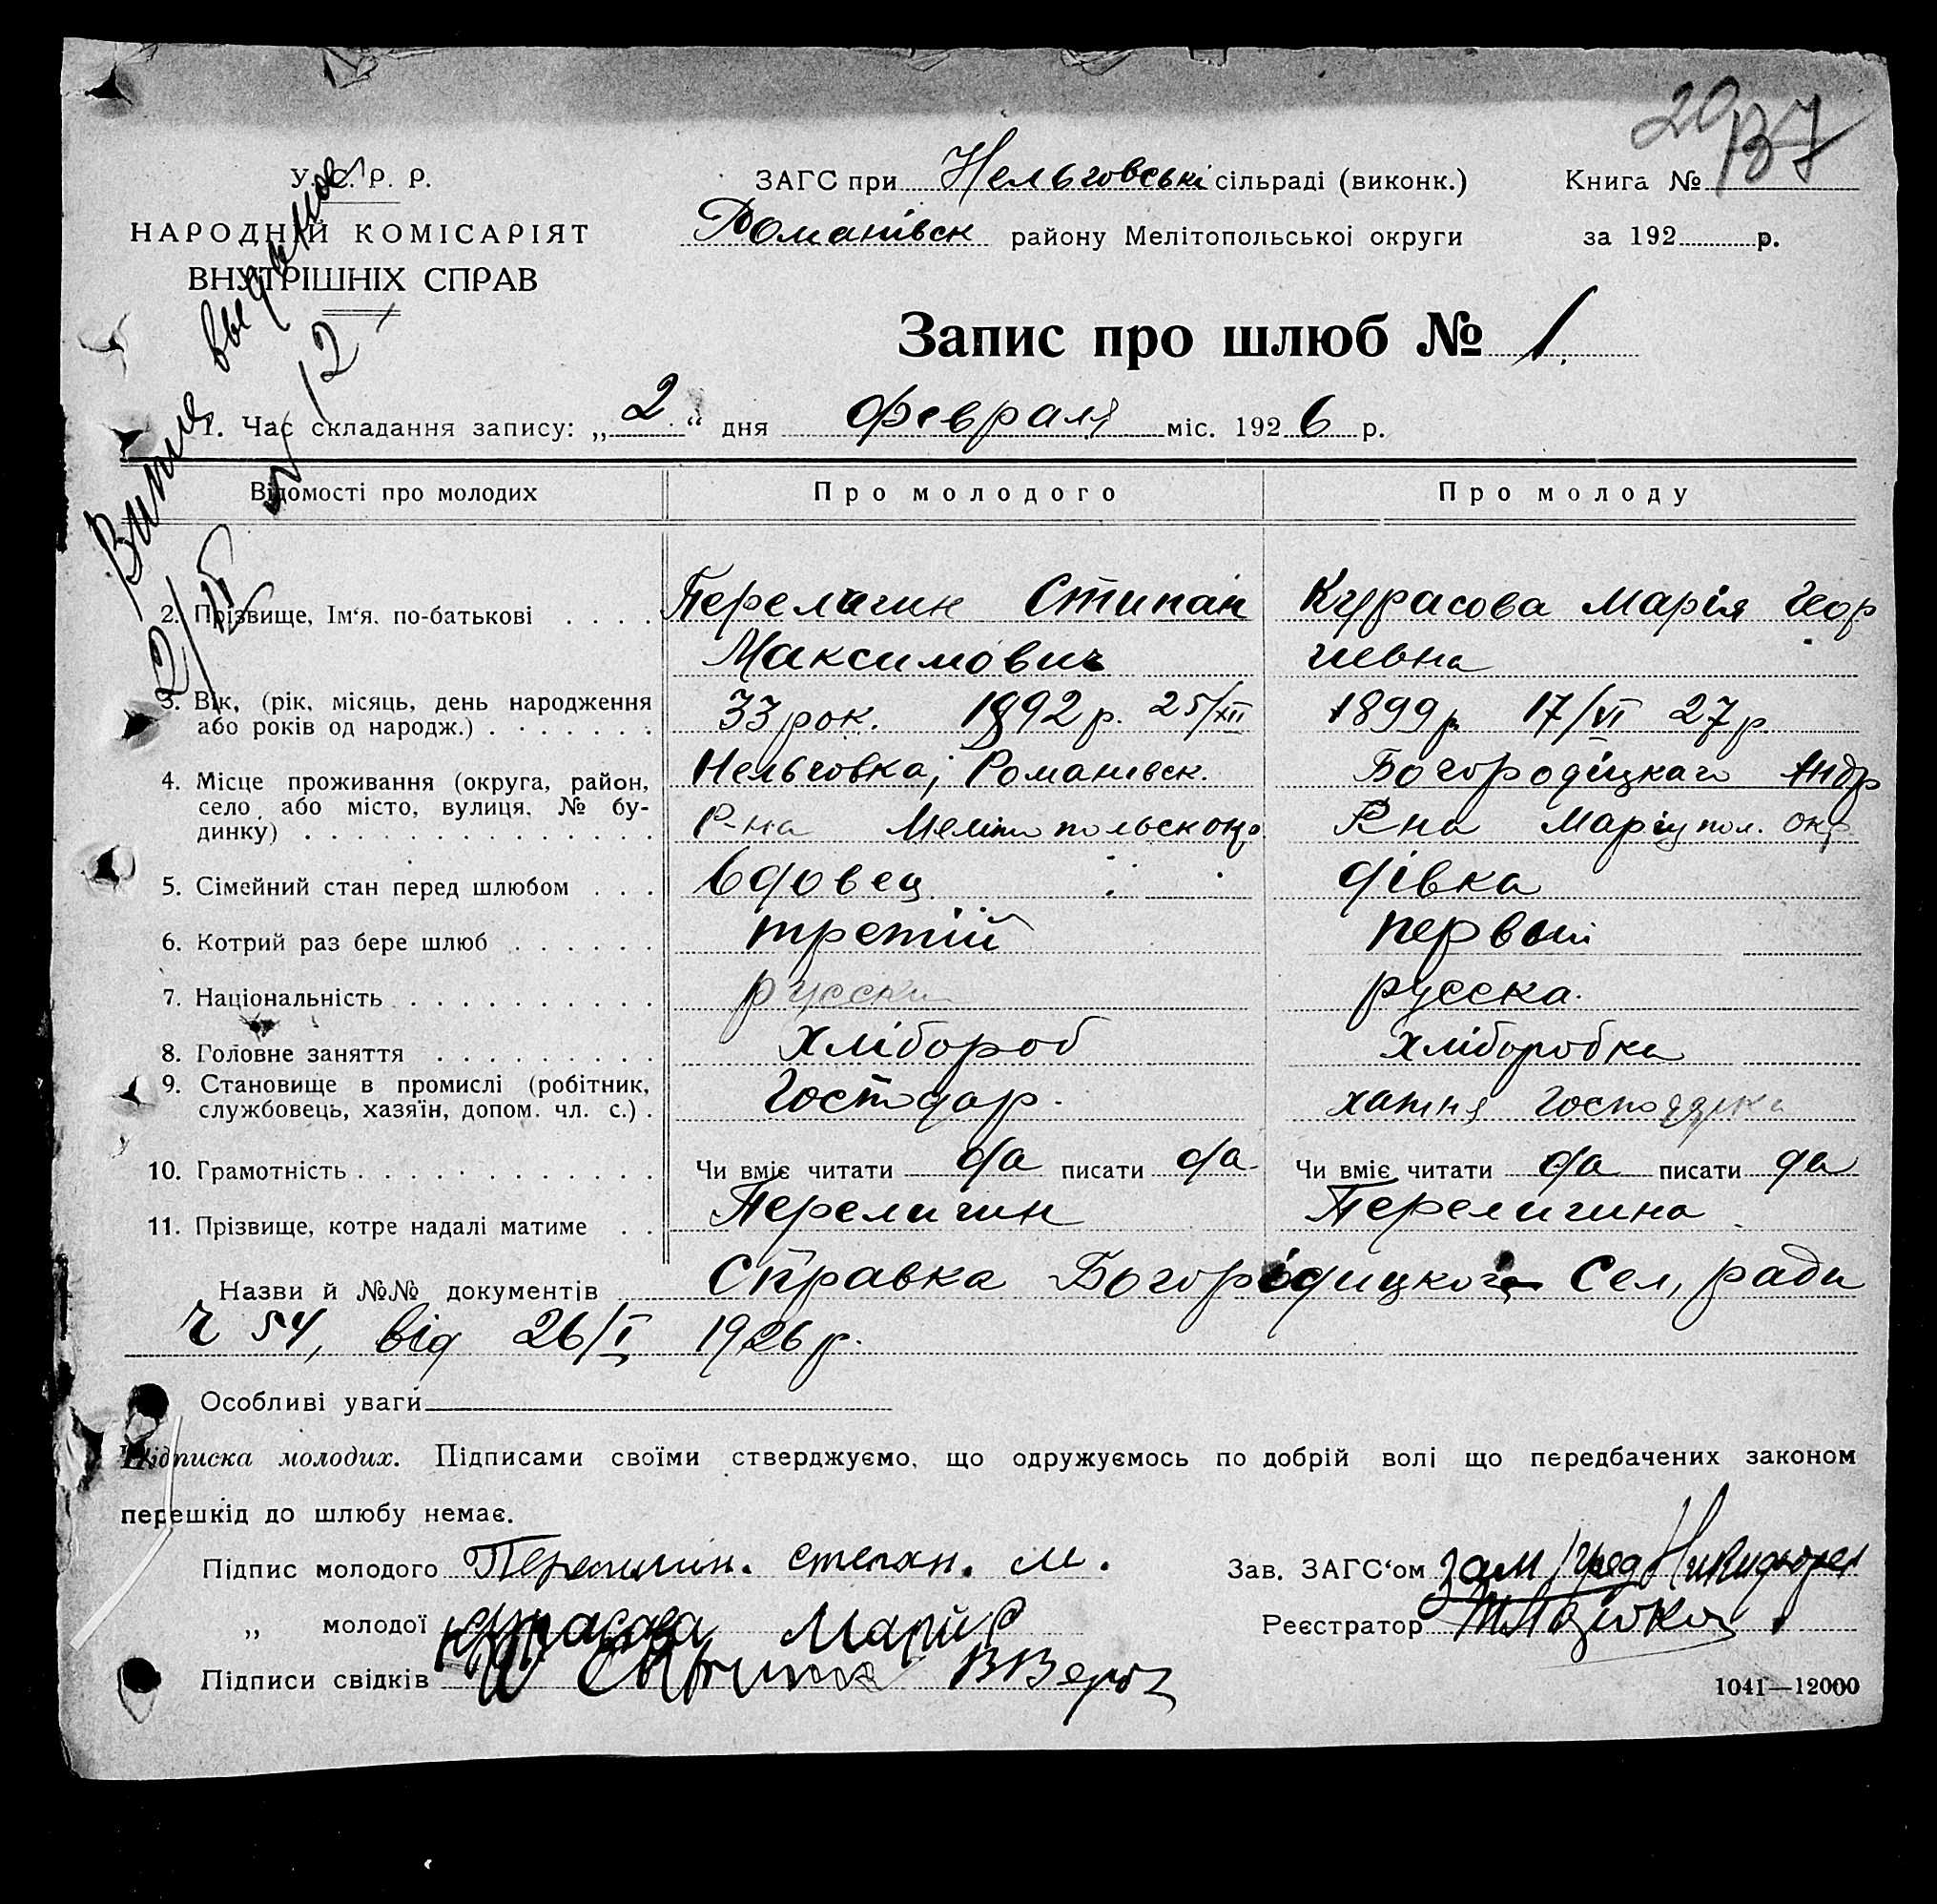 29
137
У. С. Р. Р.
НАРОДНІЙ КОМІСАРІЯТ
ВНУТРІШНІХ СПРАВ
ЗАГС при Нельговські сільраді (виконк.)
Романівск району Мелітопольськоі округи
Книга №
за 192 р.
Запис про шлюб № 1.
1. Час складання запису: „2“ дня февраля міс. 1926 р.
Відомості про молодих Про молодого Про молоду
2. Прізвище, Ім‘я. по-батькові Перелигин Стипан Курасова Марія Геор
Максимович гиевна
3. Вік, (рік, місяць, день народження 33 рок. 1892 р. 25/XII 1899 р 17/VI 27 р.
або років од народж.)
4. Місце проживання (округа, район, Нельговка, Романівск. Богородіцкаго Андр
село або місто, вулиця, № бу-
динку) Р-на Мелітопольск окр Рна Маріупол. окр
5. Сімейний стан перед шлюбом вдовец дівка
6. Котрий раз бере шлюб третій первыі
7. Національність русски русска.
8. Головне заняття хлібороб хліборобка
9. Становище в промислі (робітник, Господар. хатня господарка
службовець, хазяїн, допом. чл. с.)
10. Грамотність Чи вміє читати да писати да Чи вміє читати да писати да
11. Прізвище, котре надалі матиме Перелигин Перелигина
Назви й №№ документів Справка Богородицкого Сел, ради
ч 54, від 26/I 1926 р.
Особливі уваги
Підписка молодих. Підписами своїми стверджуємо, що одружуємось по добрій волі що передбачених законом
перешкід до шлюбу немає.
Підпис молодого Перелигин. степан. м.
Зав. ЗАГС‘ом зам
„ молодої Курасова Мария
Реєстратор
Підписи свідків
1041—12000